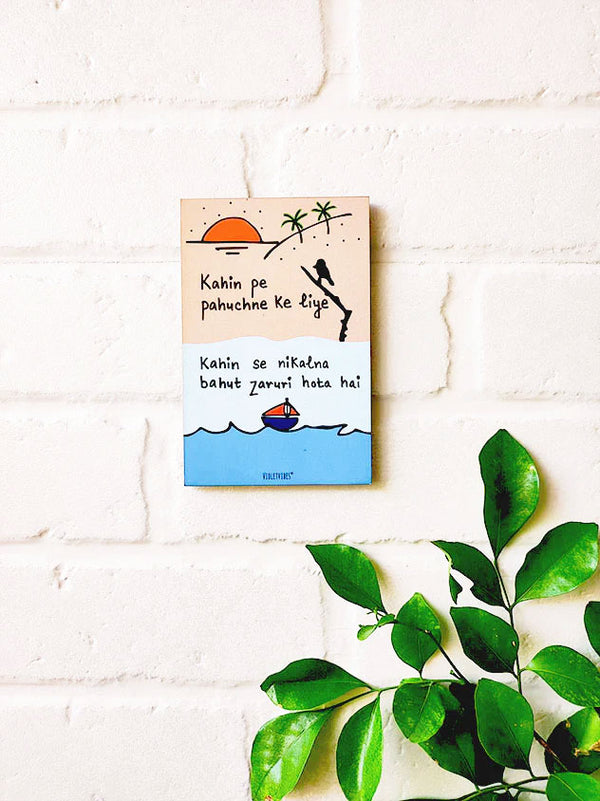 Kahin pe
pahuchne ke liye
Kahin se nikalna
bahut zaruri hota hai
VIOLETVIBES™